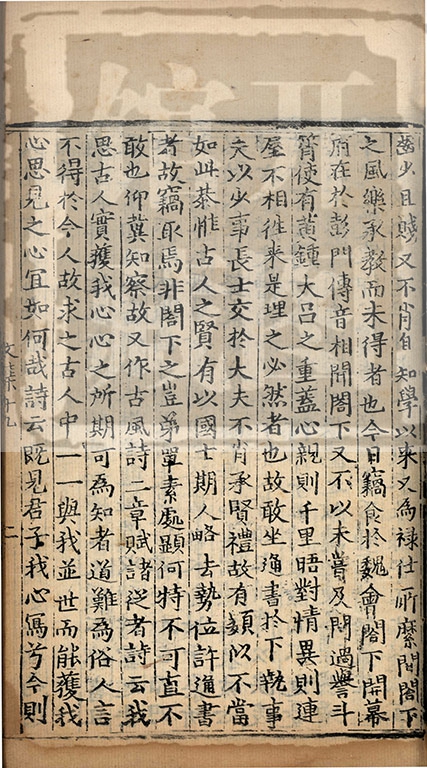 齒少且賤又不肖自知學以來又為祿仕所縻聞閤下
之風樂承教而未得者也今日竊食於魏會閤下開幕
府在於彭門傳音相聞閤下又不以未甞及門過譽斗
筲使有黃鍾大呂之重蓋心親則千里晤對情異則連
屋不相往來是理之必然者也故敢坐通書於下執事
夫以少事長士交於大夫不肖承賢禮故有類似不當
如此恭惟古人之賢有以國士期人略去勢位許通書
者故竊取焉非閤下之豈弟單素處顯何特不可直不
敢也仰冀知察故又作古風詩二章賦諸從者詩云我
思古人實獲我心心之所期可為知者道難為俗人言
不得於今人故求之古人中一一與我並世而能獲我
心思見之心宜如何哉詩云既見君子我心寫兮今則
文集十九 二